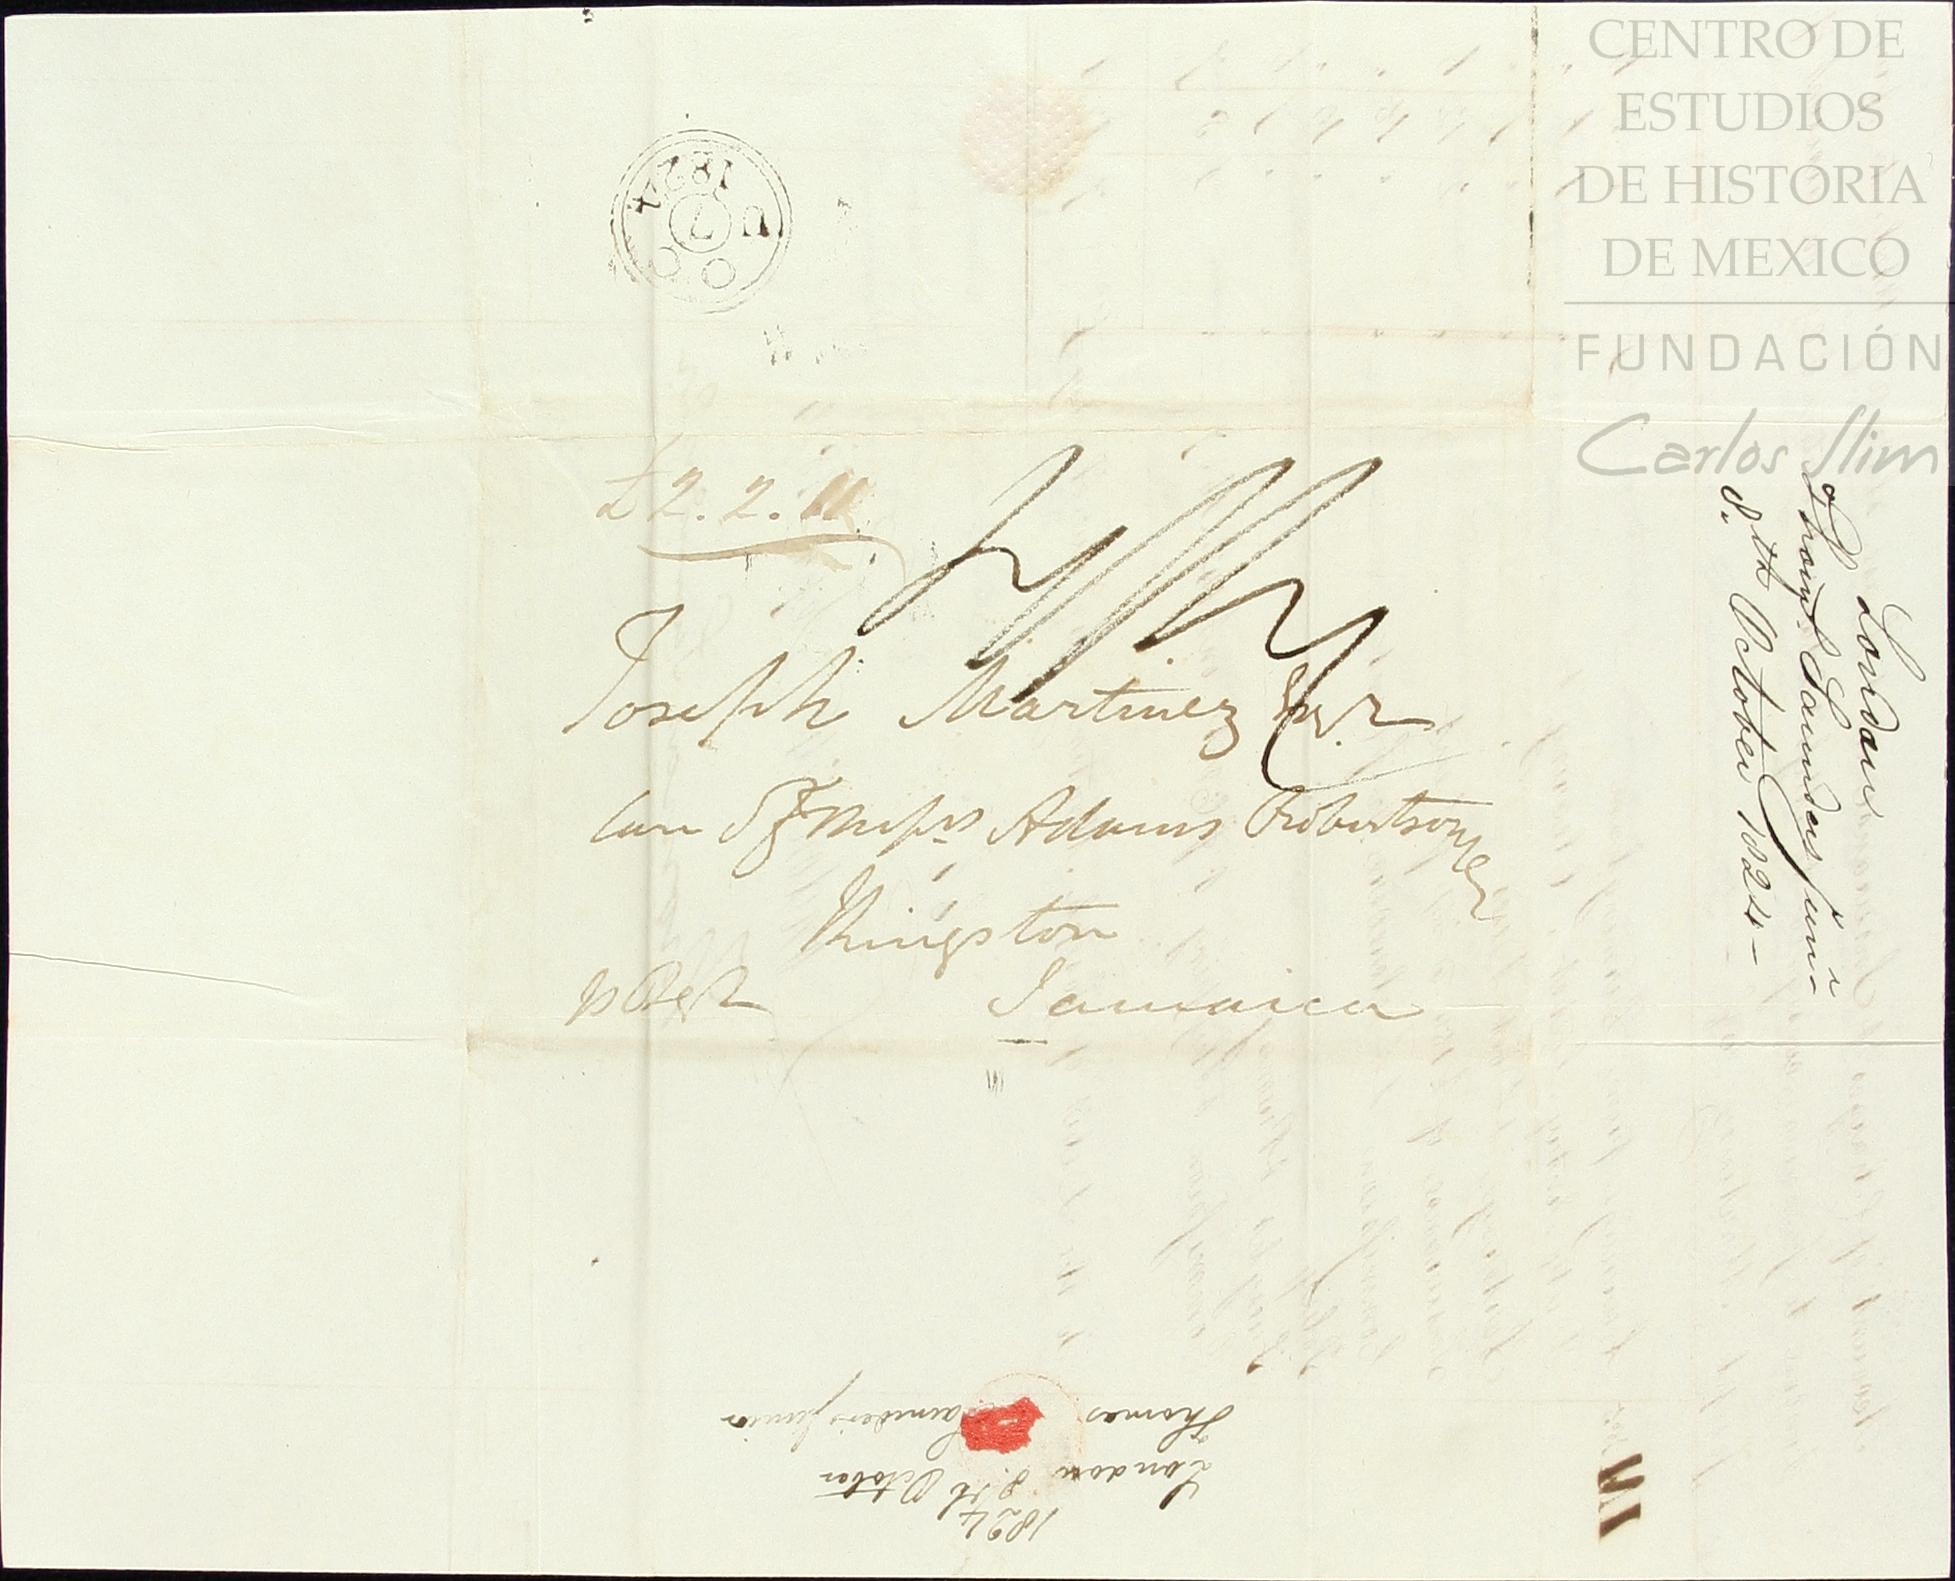 CENTRO DE
ESTUDIOS
DE HISTORIA
DE MEXICO
FUNDACIÓN
Carlos Slim
1824
7
£2.2.
Joseph Martinez Esqr
Care of Messrs Adams Robertson &Co
Kingston
Jamaica
London
Thoms. Saunders junr
8.th October 1824
1824
London 8.th October
Thomas Saunders Junior